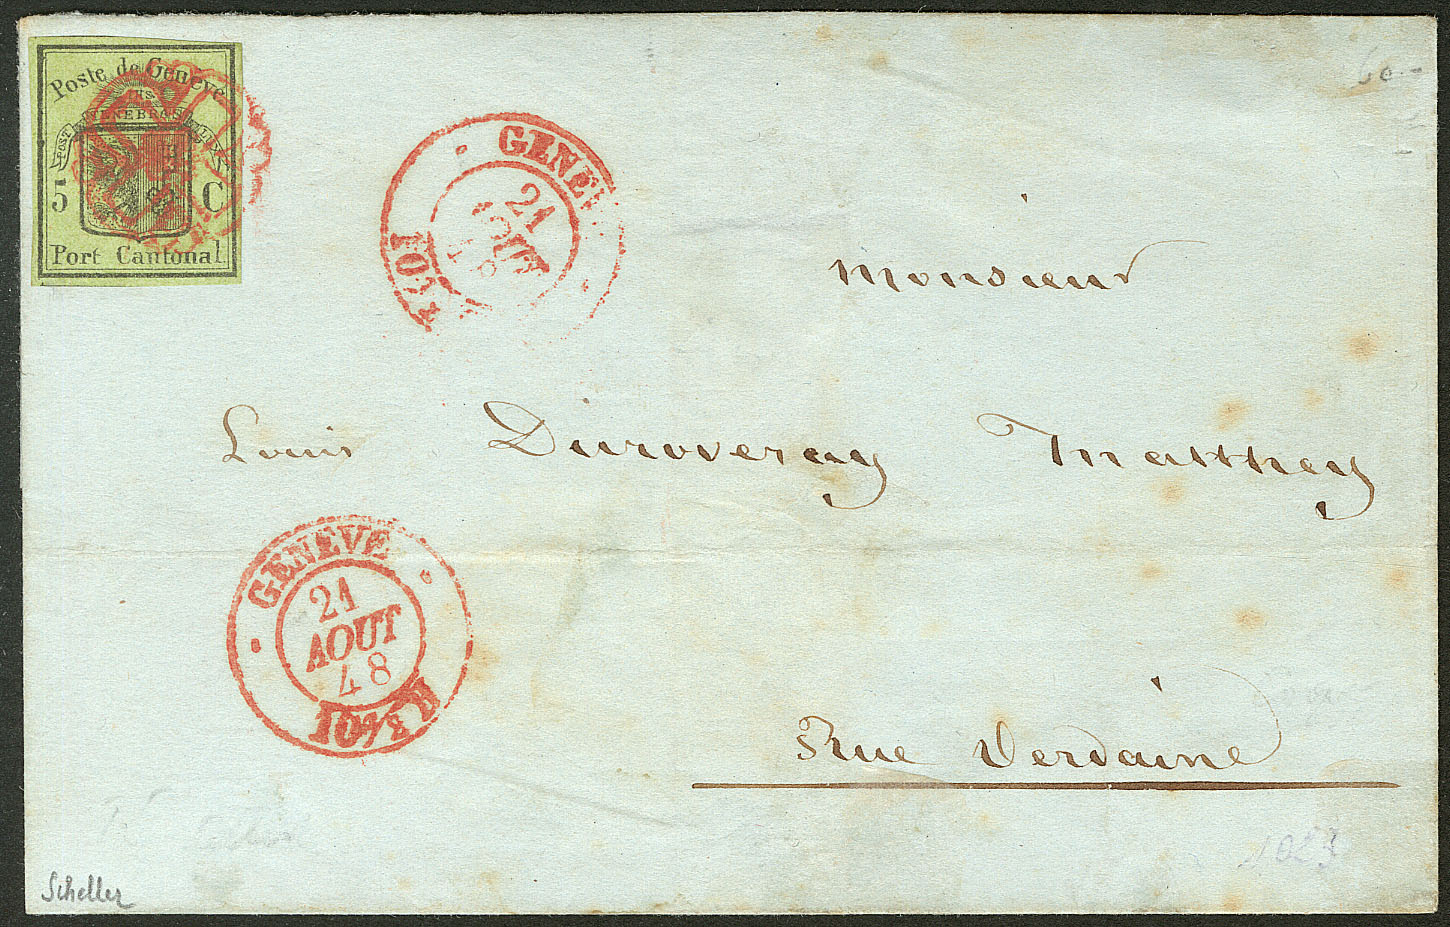 Poste de Genève
POST TENEBRAS LUX
5 C
Port Cantonal
GENEV
21
AOUT
10¾
Monsieur
Louis Duroveray Matthey
GENEVE
21
AOUT
48
10¾ M
Rue Verdaine
1023
Scheller